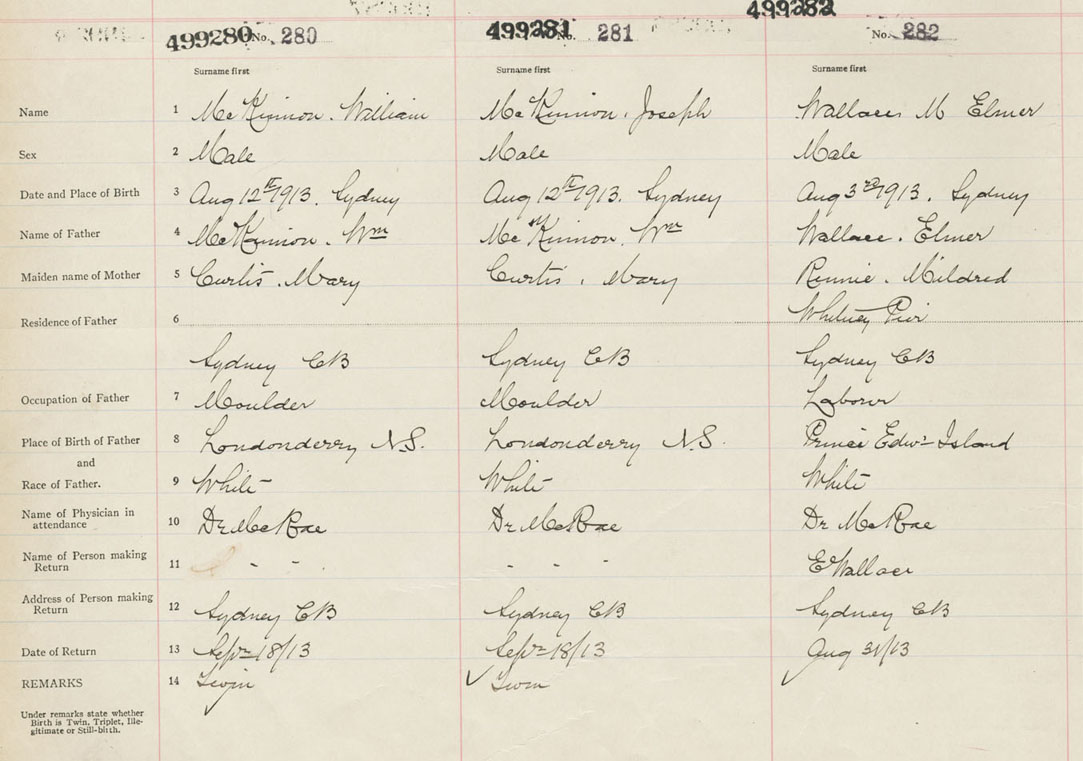 499280 No. 280 499281 No. 281 499282 No. 282
Surname first Surname first Surname first
Name 1 McKinnon. William McKinnon. Joseph Wallace, M Elmer
Sex 2 Male Male Male
Date and Place of Birth 3 Aug 12th 1913. Sydney Aug 12th 1913. Sydney Aug 3rd 1913. Sydney
Name of Father 4 McKinnon. Wm McKinnon. Wm Wallace. Elmer
Maiden name of Mother 5 Curtis. Mary Curtis. Mary Rennie. Mildred
Residence of Father 6 Whitney Pier
Sydney CB Sydney CB Sydney CB
Occupation of Father 7 Moulder Moulder Laborer
Place of Birth of Father 8 Londonderry N.S. Londonderry N.S. Prince Edw. Island
and
Race of Father. 9 White White White
Name of Physician in
attendance 10 Dr McRae Dr McRae Dr McRae
Name of Person making
Return 11 - - - - - E Wallace
Address of Person making
Return 12 Sydney CB Sydney CB Sydney CB
Date of Return 13 Sept 18/13 Sept 18/13 Aug 31/13
REMARKS 14 Twin Twin
Under remarks state whether
Birth is Twin, Triplet, Ille-
gitimate or Still-birth.